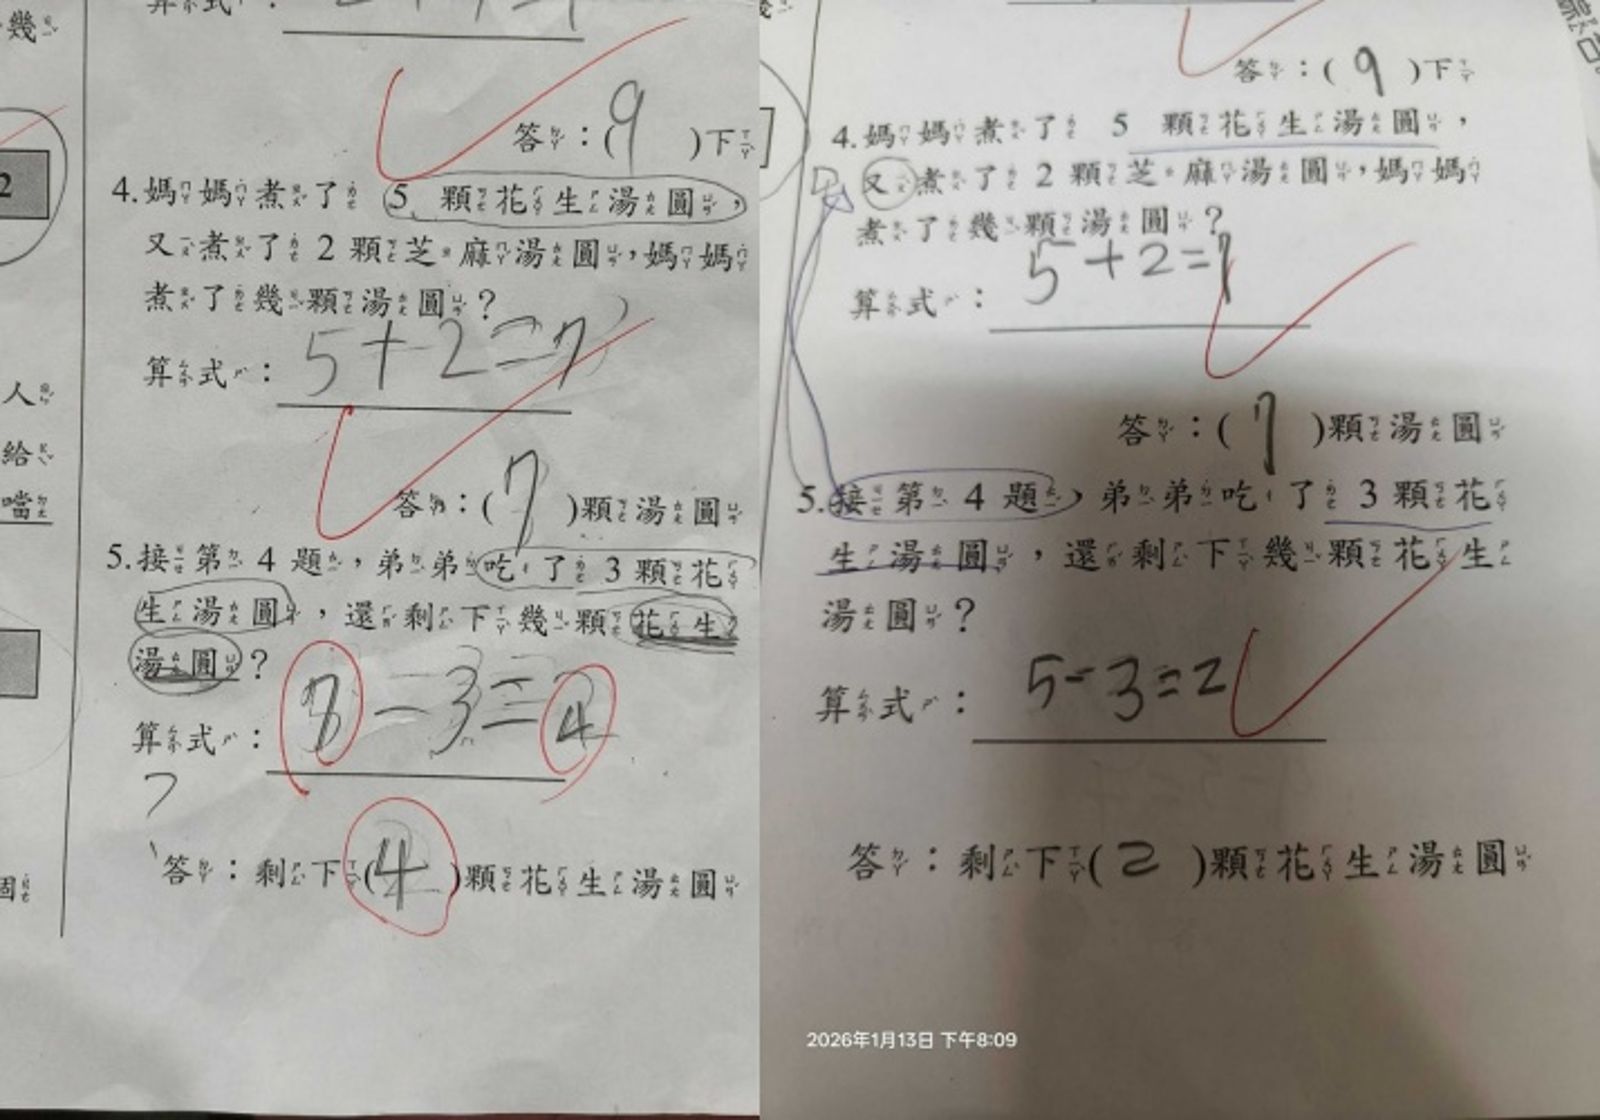 幾
2
人
給
噹
個
答：(9)下
4.媽媽煮了 5 顆花生湯圓，
又煮了 2 顆芝麻湯圓，媽媽
煮了幾顆湯圓？
算式：5+2=7
答：(7)顆湯圓
5.接第 4 題，弟弟吃了 3 顆花
生湯圓，還剩下幾顆花生
湯圓？
算式：7-3=4
答：剩下(4)顆花生湯圓
答：(9)下
4.媽媽煮了 5 顆花生湯圓，
又煮了 2 顆芝麻湯圓，媽媽
煮了幾顆湯圓？
算式：5+2=7
答：(7)顆湯圓
5.接第 4 題，弟弟吃了 3 顆花
生湯圓，還剩下幾顆花生
湯圓？
算式：5-3=2
答：剩下(2)顆花生湯圓
2026年1月13日 下午8:09